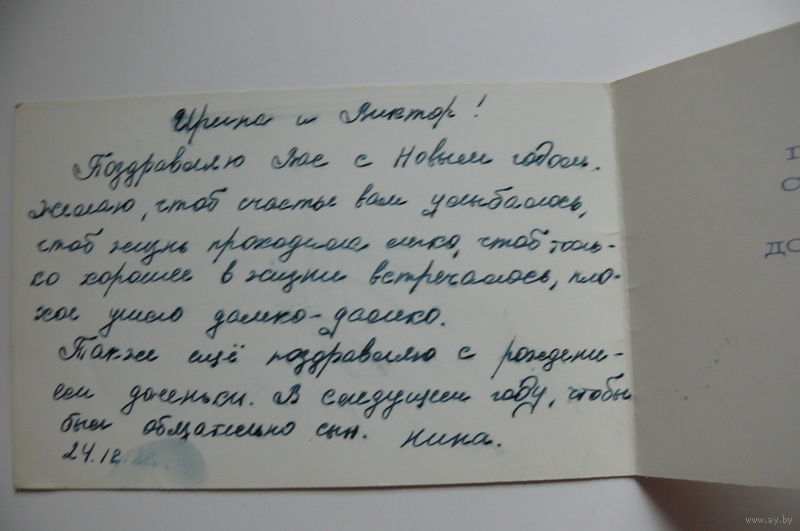 Ирина и Виктор!
Поздравляю Вас с Новым годом.
Желаю, чтоб счастье вам улыбалось,
чтоб жизнь проходила легко, чтоб толь-
ко хорошее в жизни встречалось, пло-
хое ушло далеко-далеко.
Также ещё поздравляю с рождени-
ем доченьки. В следущем году, чтобы
был обязательно сын. Нина.
24.12.
до
www.ay.by